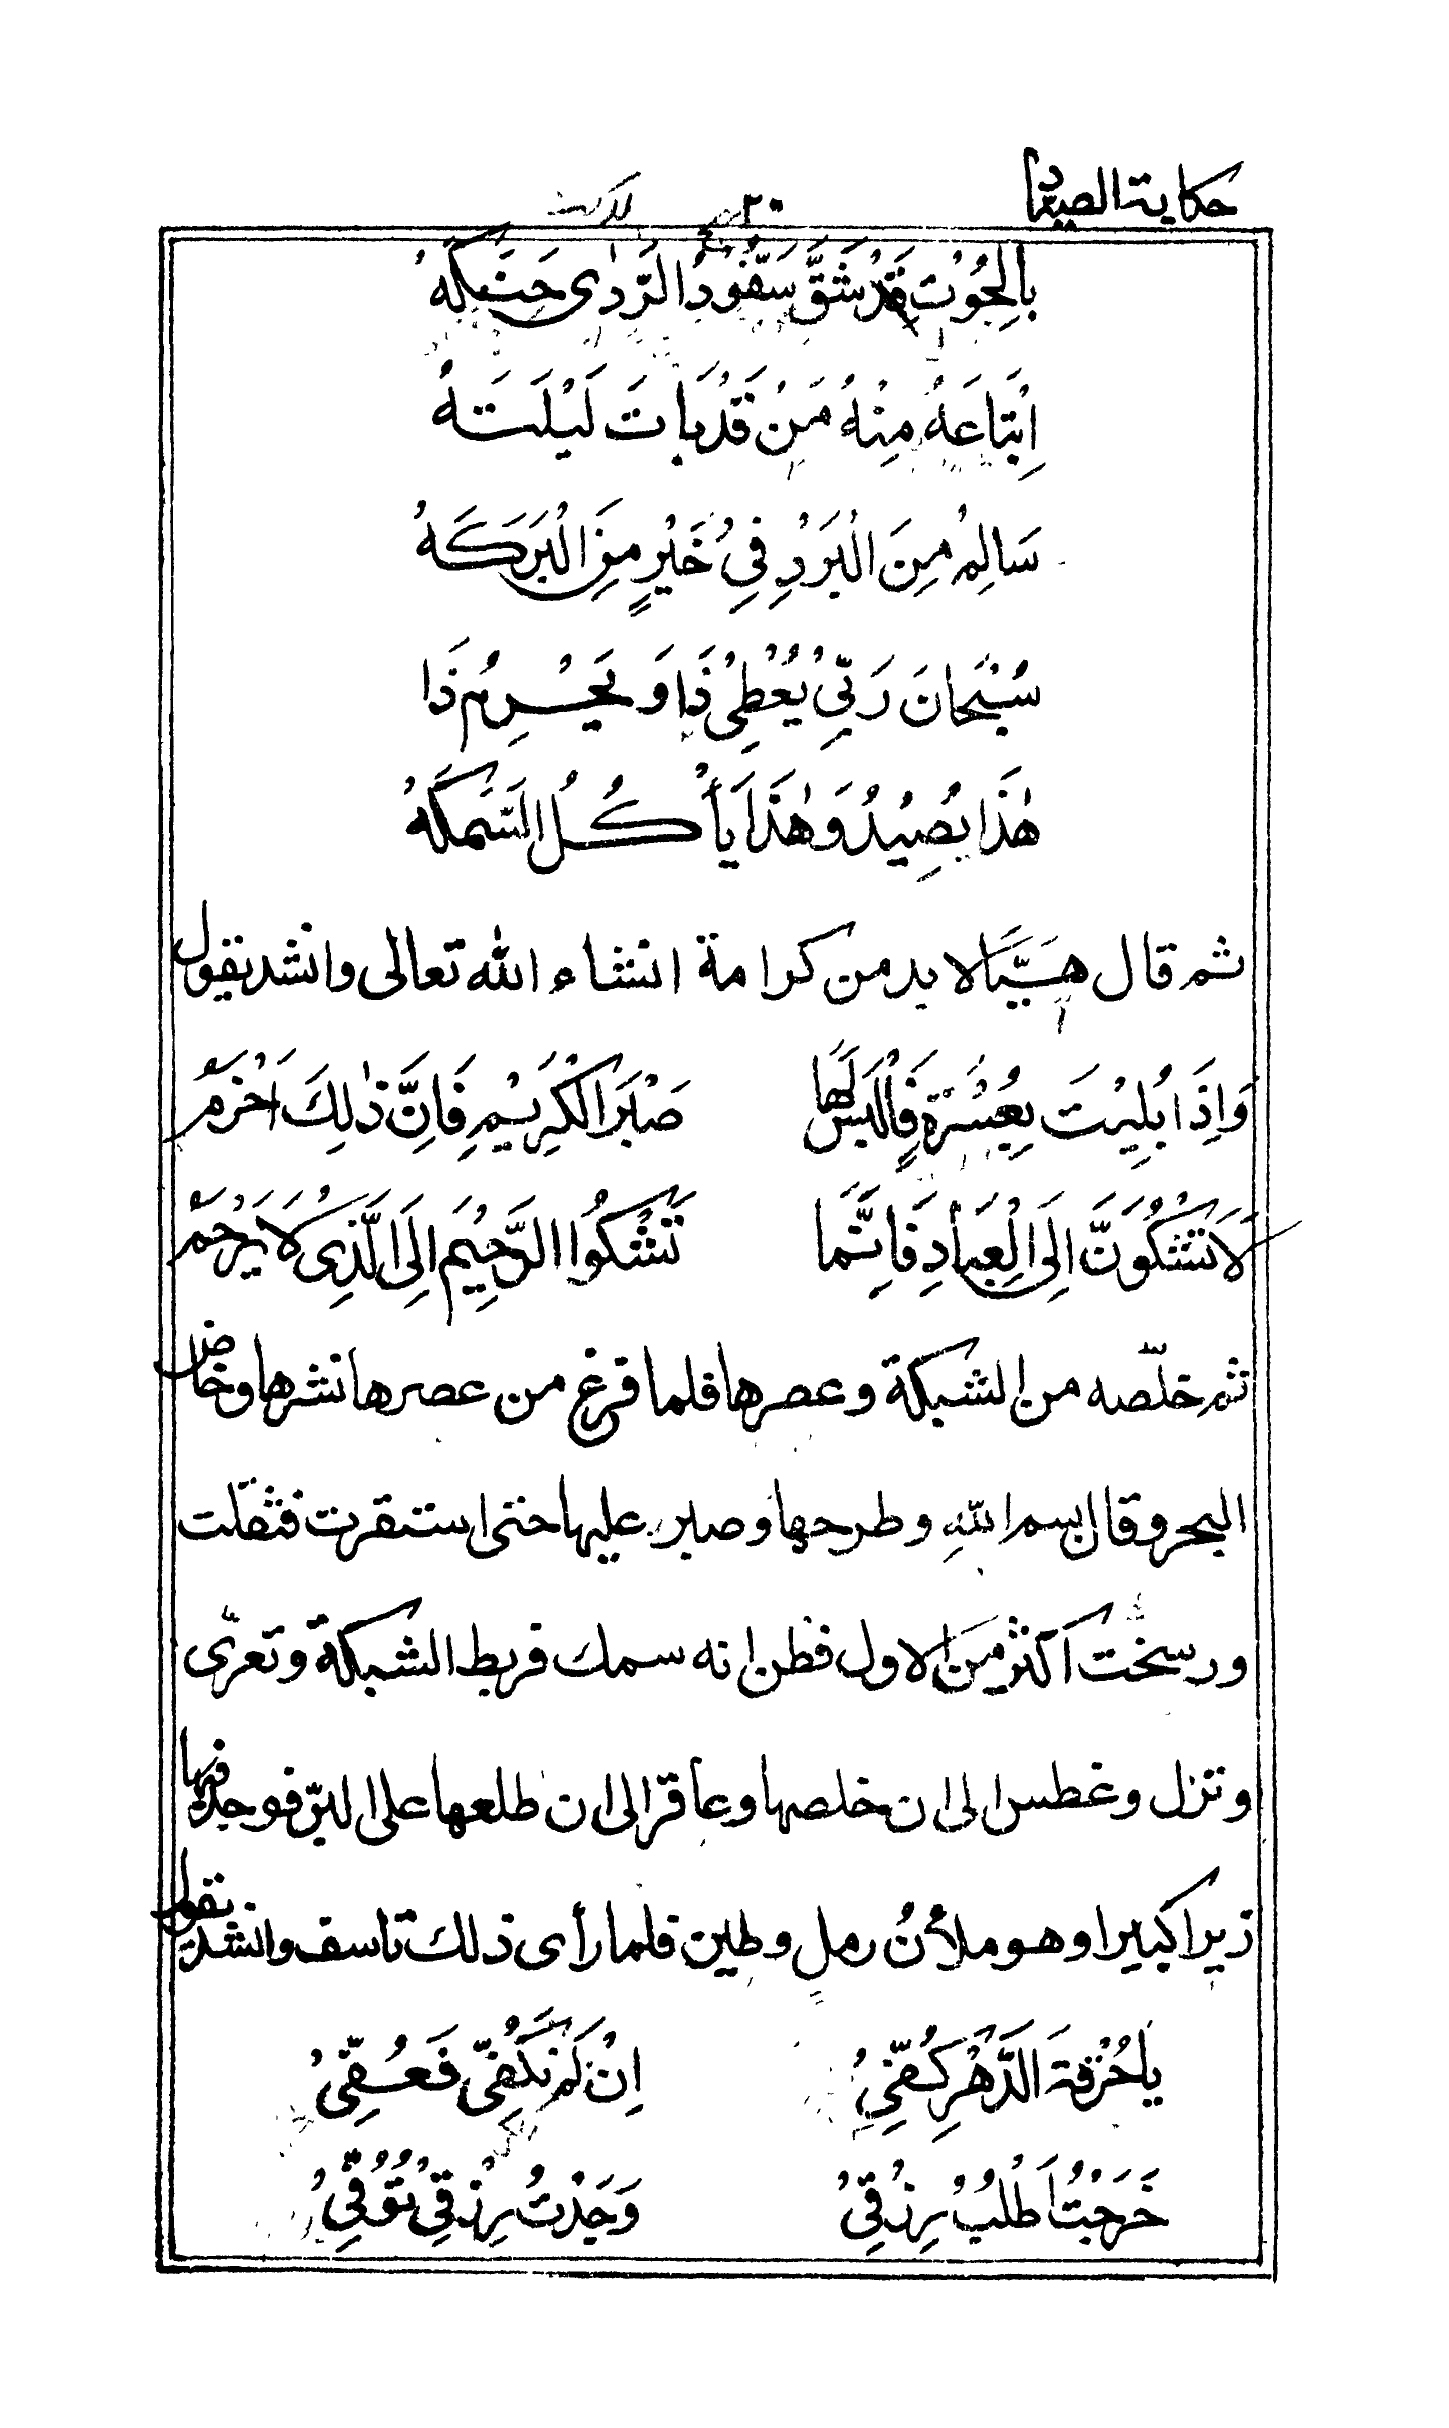 حكاية الصياد
٢٠
بِالْحُوْتِ قَدْ شَقَّ سَفُّوْدُ الرَّدٰى حَنَكَهُ
اِبْتَاعَهُ مِنْهُ مَنْ قَدْ بَاتَ لَيْلَتَهُ
سَالِمْ مِنَ الْبَرْدِ فِيْ خَيْرٍ مِنَ الْبَرَكَهُ
سُبْحَانَ رَبِّيْ يُعْطِيْ ذَا وَيَحْرِمُ ذَا
هٰذَا يَصِيْدُ وَهٰذَا يَأْكُلُ السَّمَكَهُ
ثم قال هَيَّا لا بد من كرامة انشاء الله تعالى وانشد يقول
وَاِذَا بُلِيْتَ بِعُسْرَةٍ فَالْبَسْ لَهَا صَبْرَ الْكَرِيْمِ فَاِنَّ ذٰلِكَ اَحْزَمُ
لَا تَشْكُوَنَّ اِلَى الْعِبَادِ فَاِنَّمَا تَشْكُوا الرَّحِيْمَ اِلَى الَّذِى لَا يَرْحَمُ
ثم خلّصه من الشبكة وعصرها فلما فرغ من عصرها نشرها وخاض
البحر وقال بسم اللهِ وطرحها وصبر عليها حتى استقرت فثقلت
ورسخت اكثر مِنَ الاول فظن انه سمك فربط الشبكة وتعرّى
ونزل وغطس الى ان خلصها وعافر الى ان طلعها على البرّ فوجد فيها
زيرا كبيرا وهو ملأنُ رمل وطين فلما رأى ذلك تأسف وانشد يقول
يَا حُرْقَةَ الدَّهْرِ كُفِّيْ اِنْ لَمْ تَكُفِّى فَعُفِّيْ
خَرَجْتُ اَطْلُبُ رِزْقِيْ وَجَدْتُ رِزْقِيْ تُوُفِّيْ